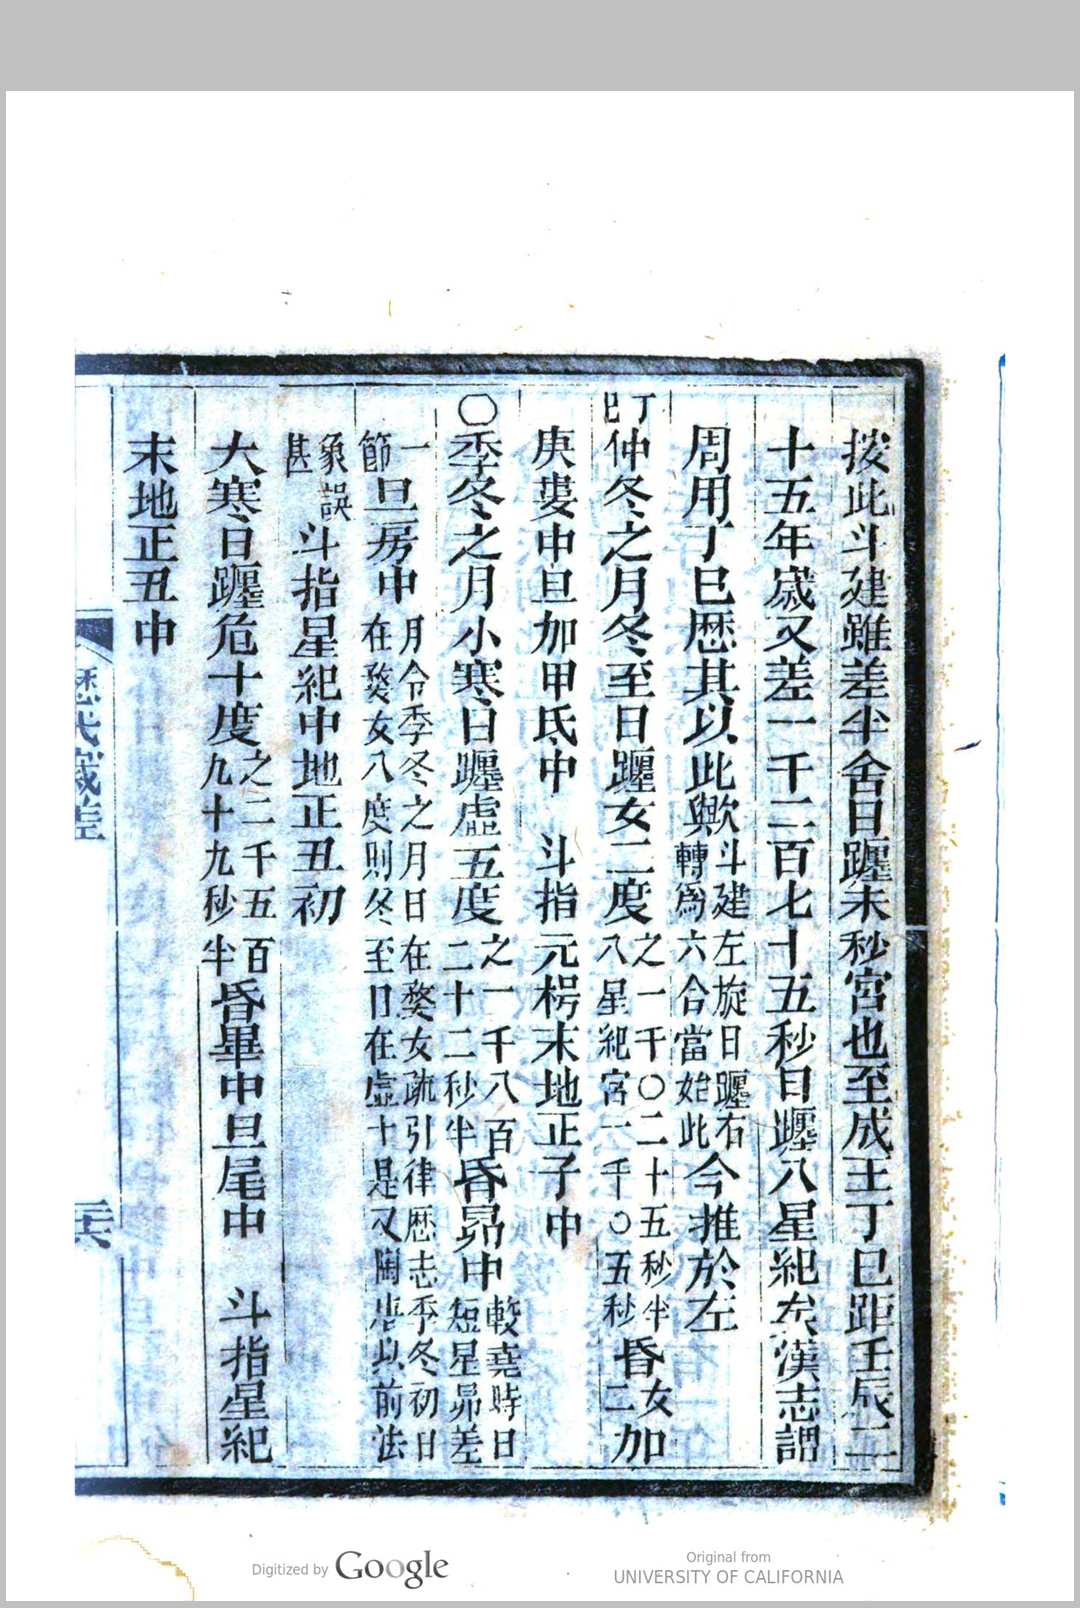 按此斗建雖差半舍日躔未秒宮也至成王丁巳距壬辰二
十五年歲又差一千二百七十五秒日躔八星紀矣漢志謂
周用丁巳歷其以此歟斗建左旋日躔右轉爲六合當始此今推於左
丁巳仲冬之月冬至日躔女二度之一千〇二十五秒半八星紀宮一千〇五秒昏女二加
庚婁中旦加甲氐中　斗指元枵末地正子中
〇季冬之月小寒日躔虛五度之一千八百二十二秒半昏昴中較堯時日短星昴差
一節旦房中月令季冬之月日在婺女疏引律歷志季冬初日在婺女八度則冬至日在虛十是又陶唐以前法
象誤甚斗指星紀中地正丑初
大寒日躔危十度之二千五百九十九秒半昏畢中旦尾中　斗指星紀
末地正丑中
歷代歲差
Digitized by Google
Original from
UNIVERSITY OF CALIFORNIA